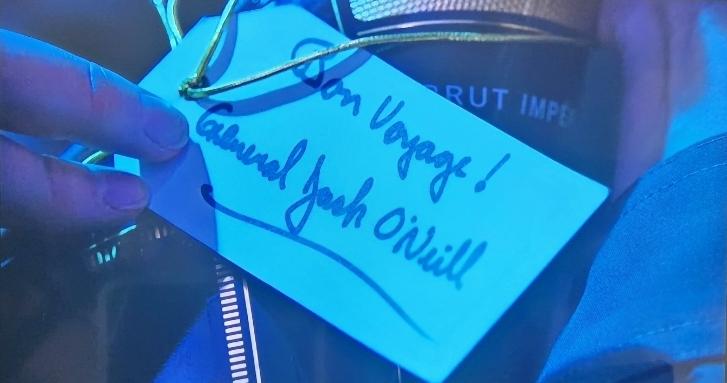 Bon Voyage!
General Jack O'Neill
BRUT IMPÉ